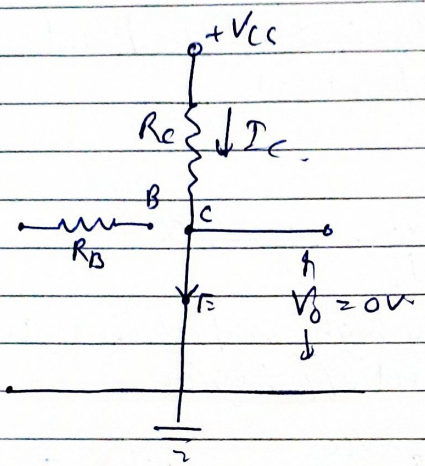 +VCC
RC
IC
B
C
RB
E
V0 = 0V